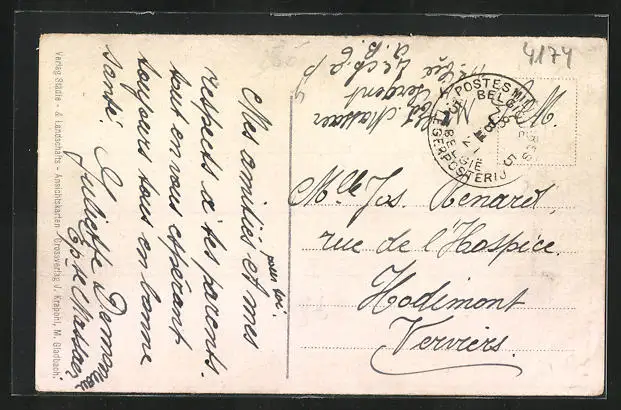 4174
Mes amitiés et mes
pour toi.
respects à tes parents.
tout en vous espérant
toujours tous en bonne
santé.
Juliette
Massaer
Sergent
POSTES MILITAIRES
BELGIQUE
BELGIË
LEGERPOSTERIJ
5
Mlle Jos Renard,
rue de l'Hospice.
Hodimont
Verviers.
Verlag Städte- & Landschafts-Ansichtskarten-Grossvertrag J. Krapohl, M. Gladbach.